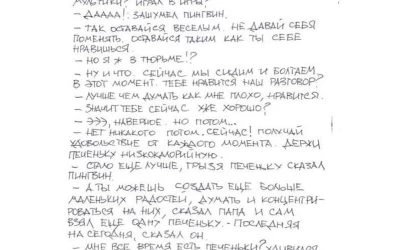 МУЛЬТИКИ? ИГРАЛ В ИГРЫ?
- ДАААА!. ЗАШУМЕЛ ПИНГВИН.
- ТАК ОСТАВАЙСЯ ВЕСЕЛЫМ. НЕ ДАВАЙ СЕБЯ
ПОМЕНЯТЬ. ОСТАВАЙСЯ ТАКИМ КАК ТЫ СЕБЕ
НРАВИШЬСЯ.
- НО Я Ж В ТЮРЬМЕ!?
- НУ И ЧТО. СЕЙЧАС МЫ СИДИМ И БОЛТАЕМ
В ЭТОТ МОМЕНТ. ТЕБЕ НРАВИТСЯ НАШ РАЗГОВОР?
- ЛУЧШЕ ЧЕМ ДУМАТЬ КАК МНЕ ПЛОХО, НРАВИТСЯ.
- ЗНАЧИТ ТЕБЕ СЕЙЧАС УЖЕ ХОРОШО?
- ЭЭЭ, НАВЕРНОЕ. НО ПОТОМ...
- НЕТ НИКАКОГО ПОТОМ. СЕЙЧАС! ПОЛУЧАЙ
УДОВОЛЬСТВИЕ ОТ КАЖДОГО МОМЕНТА. ДЕРЖИ
ПЕЧЕНЬКУ НИЗКОКАЛОРИЙНУЮ.
- СТАЛО ЕЩЕ ЛУЧШЕ, ГРЫЗЯ ПЕЧЕНЬКУ СКАЗАЛ
ПИНГВИН.
- А ТЫ МОЖЕШЬ СОЗДАТЬ ЕЩЕ БОЛЬШЕ
МАЛЕНЬКИХ РАДОСТЕЙ, ДУМАТЬ И КОНЦЕНТРИ-
РОВАТЬСЯ НА НИХ, СКАЗАЛ ПАПА И САМ
ВЗЯЛ ЕЩЕ ОДНУ ПЕЧЕНЬКУ. - ПОСЛЕДНЯЯ
НА СЕГОДНЯ, СКАЗАЛ ОН
- МНЕ ВСЕ ВРЕМЯ ЕСТЬ ПЕЧЕНЬКИ? УДИВИЛСЯ